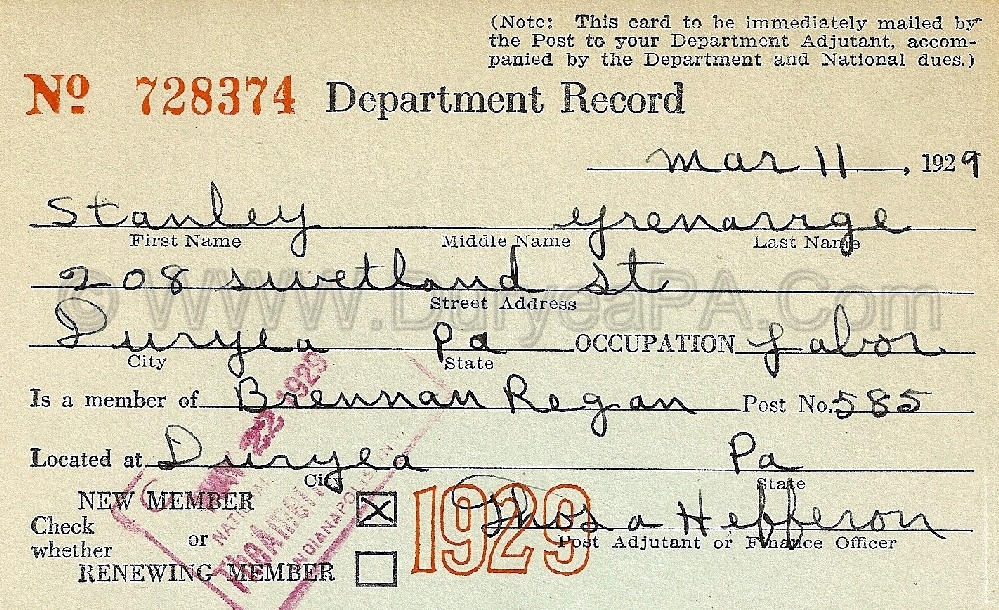 (Note: This card to be immediately mailed by
the Post to your Department Adjutant, accom-
panied by the Department and National dues.)
Nº 728374 Department Record
Mar 11, 1929
Stanley
First Name Middle Name Last Name
208 Swetland St
Street Address
© WWW.DuryeaPA.Com
Duryea Pa OCCUPATION Labor
City State
Is a member of Brennan Regan Post No. 585
Located at Duryea Pa
City State
NEW MEMBER
Check
whether or
RENEWING MEMBER
1929
Thos a Hefferon
Post Adjutant or Finance Officer
22 1929
NATIONAL
The American
INDIANAPOLIS